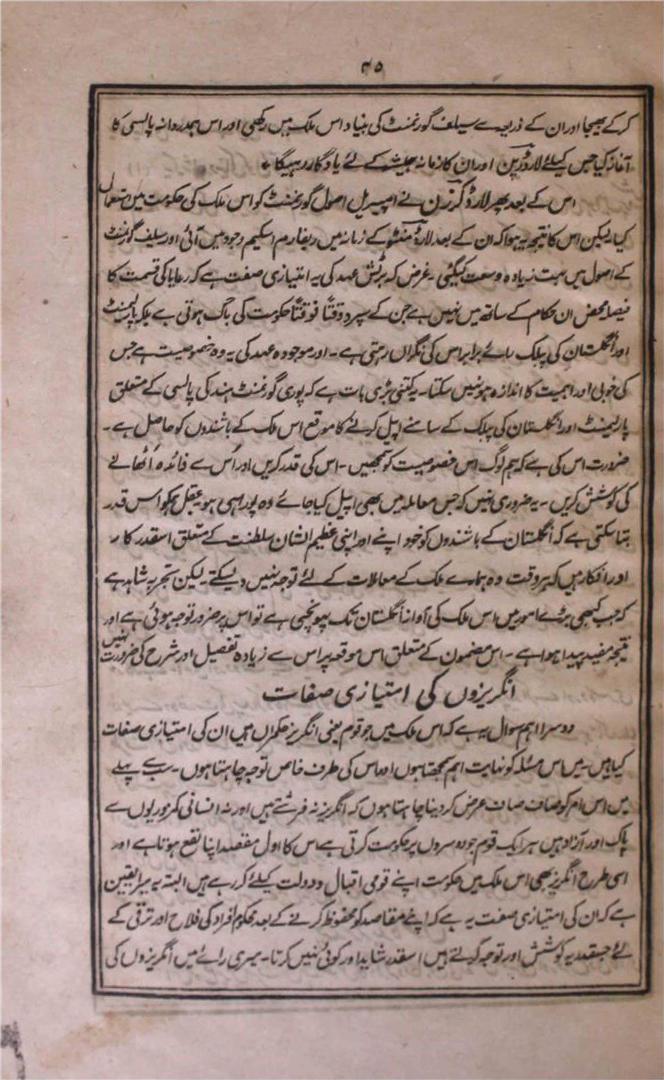 ۴۵
کرکے بھیجا اور ان کے ذریعہ سے سیلف گورنمنٹ کی بنیاد اس ملک میں رکھی اور اس ہمدردانہ پالسی کا
آغاز کیا جس کیلئے لارڈ رپن اور ان کا زمانہ ہمیشہ کے لئے یادگار رہیگا ٭
اس کے بعد پھر لارڈ کرزن نے امپیریل اصول گورنمنٹ کو اس ملک کی حکومت میں استعمال
کیا لیکن اس کا نتیجہ یہ ہوا کہ ان کے بعد لارڈ منٹو کے زمانہ میں ریفارم اسکیم وجود میں آئی اور سلف گورنمنٹ
کے اصول میں بہت زیادہ وسعت کیگئی ۔ غرض کہ برٹش عہد کی یہ امتیازی صفت ہے کہ رعایا کی قسمت کا
فیصلہ محض ان حکام کے ہاتھ میں نہیں ہے جن کے سپرد وقتاً فوقتاً حکومت کی باگ ہوتی ہے بلکہ پارلیمنٹ
اور انگلستان کی پبلک رائے برابر اس کی نگراں رہتی ہے ۔ اور موجودہ عہد کی یہ وہ خصوصیت ہے جس
کی خوبی اور اہمیت کا اندازہ ہو نہیں سکتا ۔ یہ کتنی بڑی بات ہے کہ پوری گورنمنٹ ہند کی پالسی کے متعلق
پارلیمنٹ اور انگلستان کی پبلک کے سامنے اپیل کرنے کا موقع اس ملک کے باشندوں کو حاصل ہے ۔
ضرورت اس کی ہے کہ ہم لوگ اس خصوصیت کو سمجھیں ۔ اس کی قدر کریں اور اُس سے فائدہ اُٹھانے
کی کوشش کریں ۔ یہ ضروری نہیں کہ جس معاملہ میں بھی اپیل کیا جائے وہ پورا ہی ہو عقل ہمکو اس قدر
بتا سکتی ہے کہ انگلستان کے باشندوں کو خود اپنے اور اپنی عظیم الشان سلطنت کے متعلق اسقدر کار
اور افکار ہیں کہ ہر وقت وہ ہمارے ملک کے معاملات کے لئے توجہ نہیں دیسکتے لیکن تجربہ شاہد ہے
کہ جب کبھی بڑے امور میں اس ملک کی آواز انگلستان تک پہونچی ہے تو اس پر ضرور توجہ ہوئی ہے اور
نتیجہ مفید پیدا ہوا ہے ۔ اس مضمون کے متعلق اس موقعہ پر اس سے زیادہ تفصیل اور شرح کی ضرورت نہیں
انگریزوں کی امتیازی صفات
دوسرا اہم سوال یہ ہے کہ اس ملک میں جو قوم یعنی انگریز حکمراں ہیں ان کی امتیازی صفات
کیا ہیں ۔ میں اس مسئلہ کو نہایت اہم سمجھتا ہوں اور اس کی طرف خاص توجہ چاہتا ہوں ۔ سب سے پہلے
میں اس امر کو صاف صاف عرض کر دینا چاہتا ہوں کہ انگریز نہ فرشتے ہیں اور نہ انسانی کمزوریوں سے
پاک اور آزاد ہیں ہر ایک قوم جو دوسروں پر حکومت کرتی ہے اس کا اول مقصد اپنا نفع ہوتا ہے اور
اسی طرح انگریز بھی اس ملک میں حکومت اپنے قومی اقبال و دولت کیلئے کر رہے ہیں البتہ یہ میرا یقین
ہے کہ ان کی امتیازی صفت یہ ہے کہ اپنے مقاصد کو محفوظ کرنے کے بعد محکوم افراد کی فلاح اور ترقی کے
لئے جسقدر یہ کوشش اور توجہ کرتے ہیں اسقدر شاید اور کوئی نہیں کرتا ۔ میری رائے میں انگریزوں کی